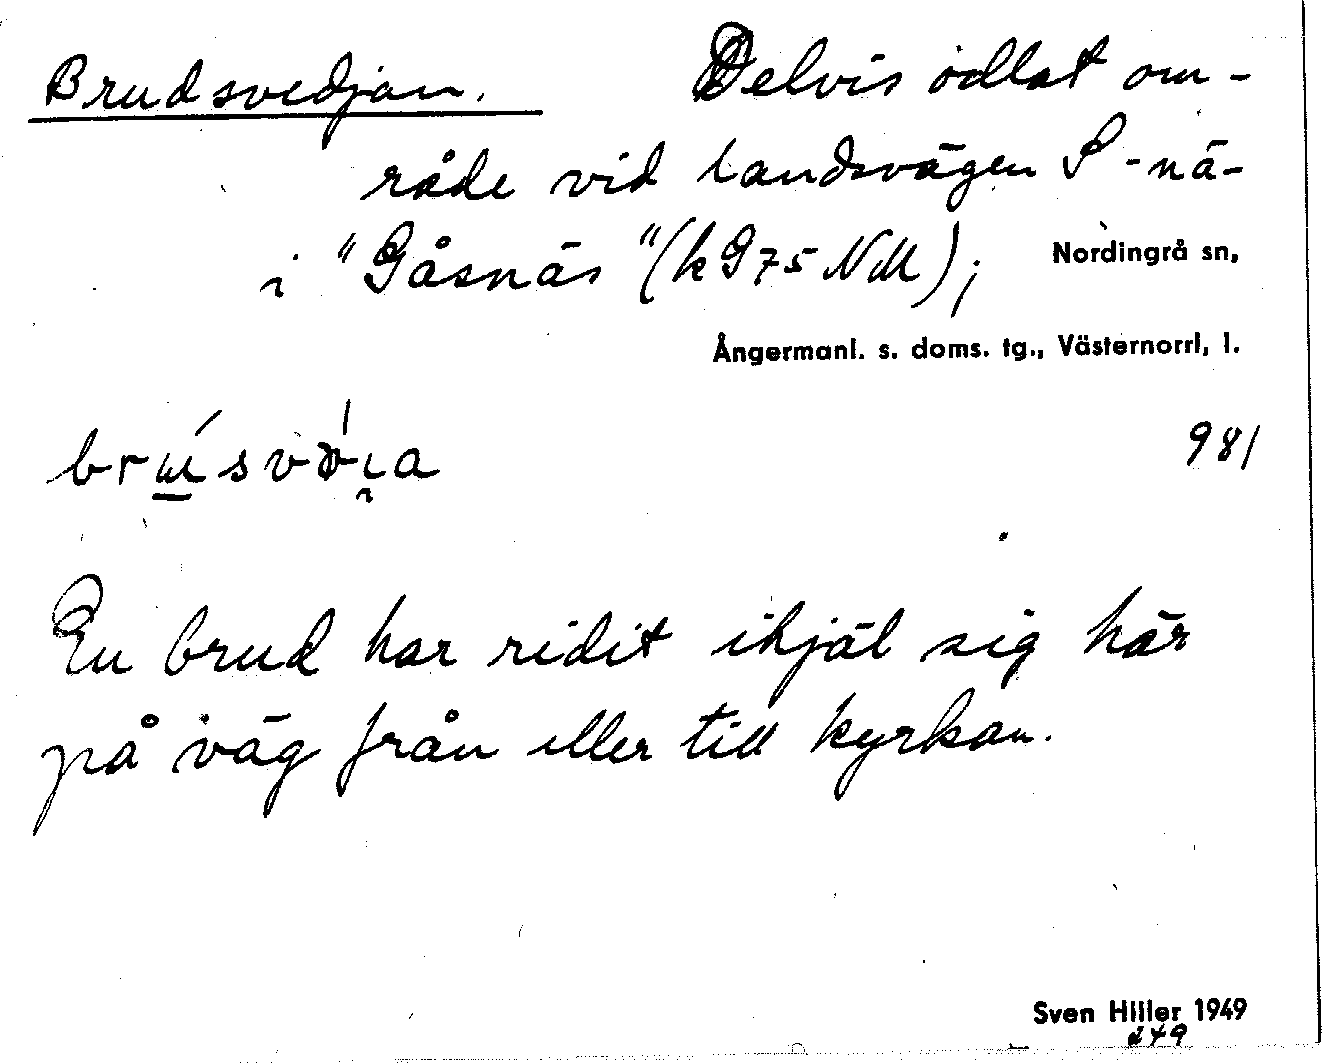 Brudsvedjan. Delvis odlat om-
råde vid landsvägen S-nä-
i "Gåsnäs" (k G75 NM); Nordingrå sn,
Ångermanl. s. doms. tg., Västernorrl, l.
981
En brud har ridit ihjäl sig här
på väg från eller till kyrkan.
Sven Hiller 1949